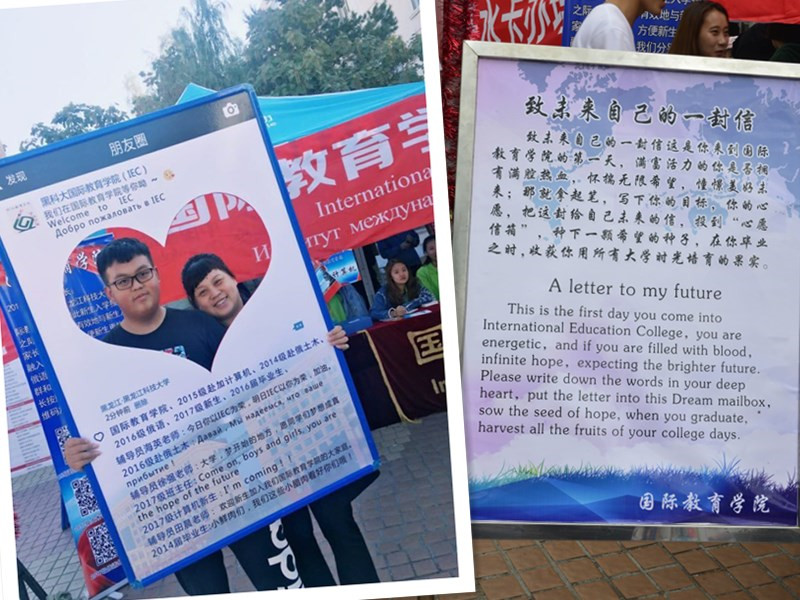 朋友圈
发现
黑科大国际教育学院(IEC)
我们在国际教育学院等你呦~
Welcome to IEC
Добро пожаловать в IEC
黑龙江·黑龙江科技大学
2分钟前 删除
国际教育学院、2015级赴加计算机、2014级赴俄土木、
2016级俄语、2017级新生、2016届毕业生、
辅导员海英老师:今日你以IEC为荣,明日IEC以你为荣,加油,
2016级赴俄土木:Давай! Мы надеемся, что ваше
прибытие!
辅导员徐强老师:大学,梦开始的地方,愿同学们梦想成真
2017级班主任:Come on, boys and girls, you are
the hope of the future
2017级计算机新生:I'm coming!
辅导员田晨老师:欢迎新生加入我们国际教育学院的大家庭,
2014届毕业生:小鲜肉们,我们这些小腊肉看好你们哦!
教育学
International
И
титут междуна
计算机
国
In
水卡办理
致未来自己的一封信
致未来自己的一封信这是你来到国际
教育学院的第一天,满富活力的你是否拥
有满腔热血,怀揣无限希望,憧憬美好未
来;那就拿起笔,写下你的目标,你的心
愿,把这封给自己未来的信,投到“心愿
信箱”,种下一颗希望的种子,在你毕业
之时,收获你用所有大学时光培育的果实。
A letter to my future
This is the first day you come into
International Education College, you are
energetic, and if you are filled with blood,
infinite hope, expecting the brighter future.
Please write down the words in your deep
heart, put the letter into this Dream mailbox,
sow the seed of hope, when you graduate,
harvest all the fruits of your college days.
国际教育学院